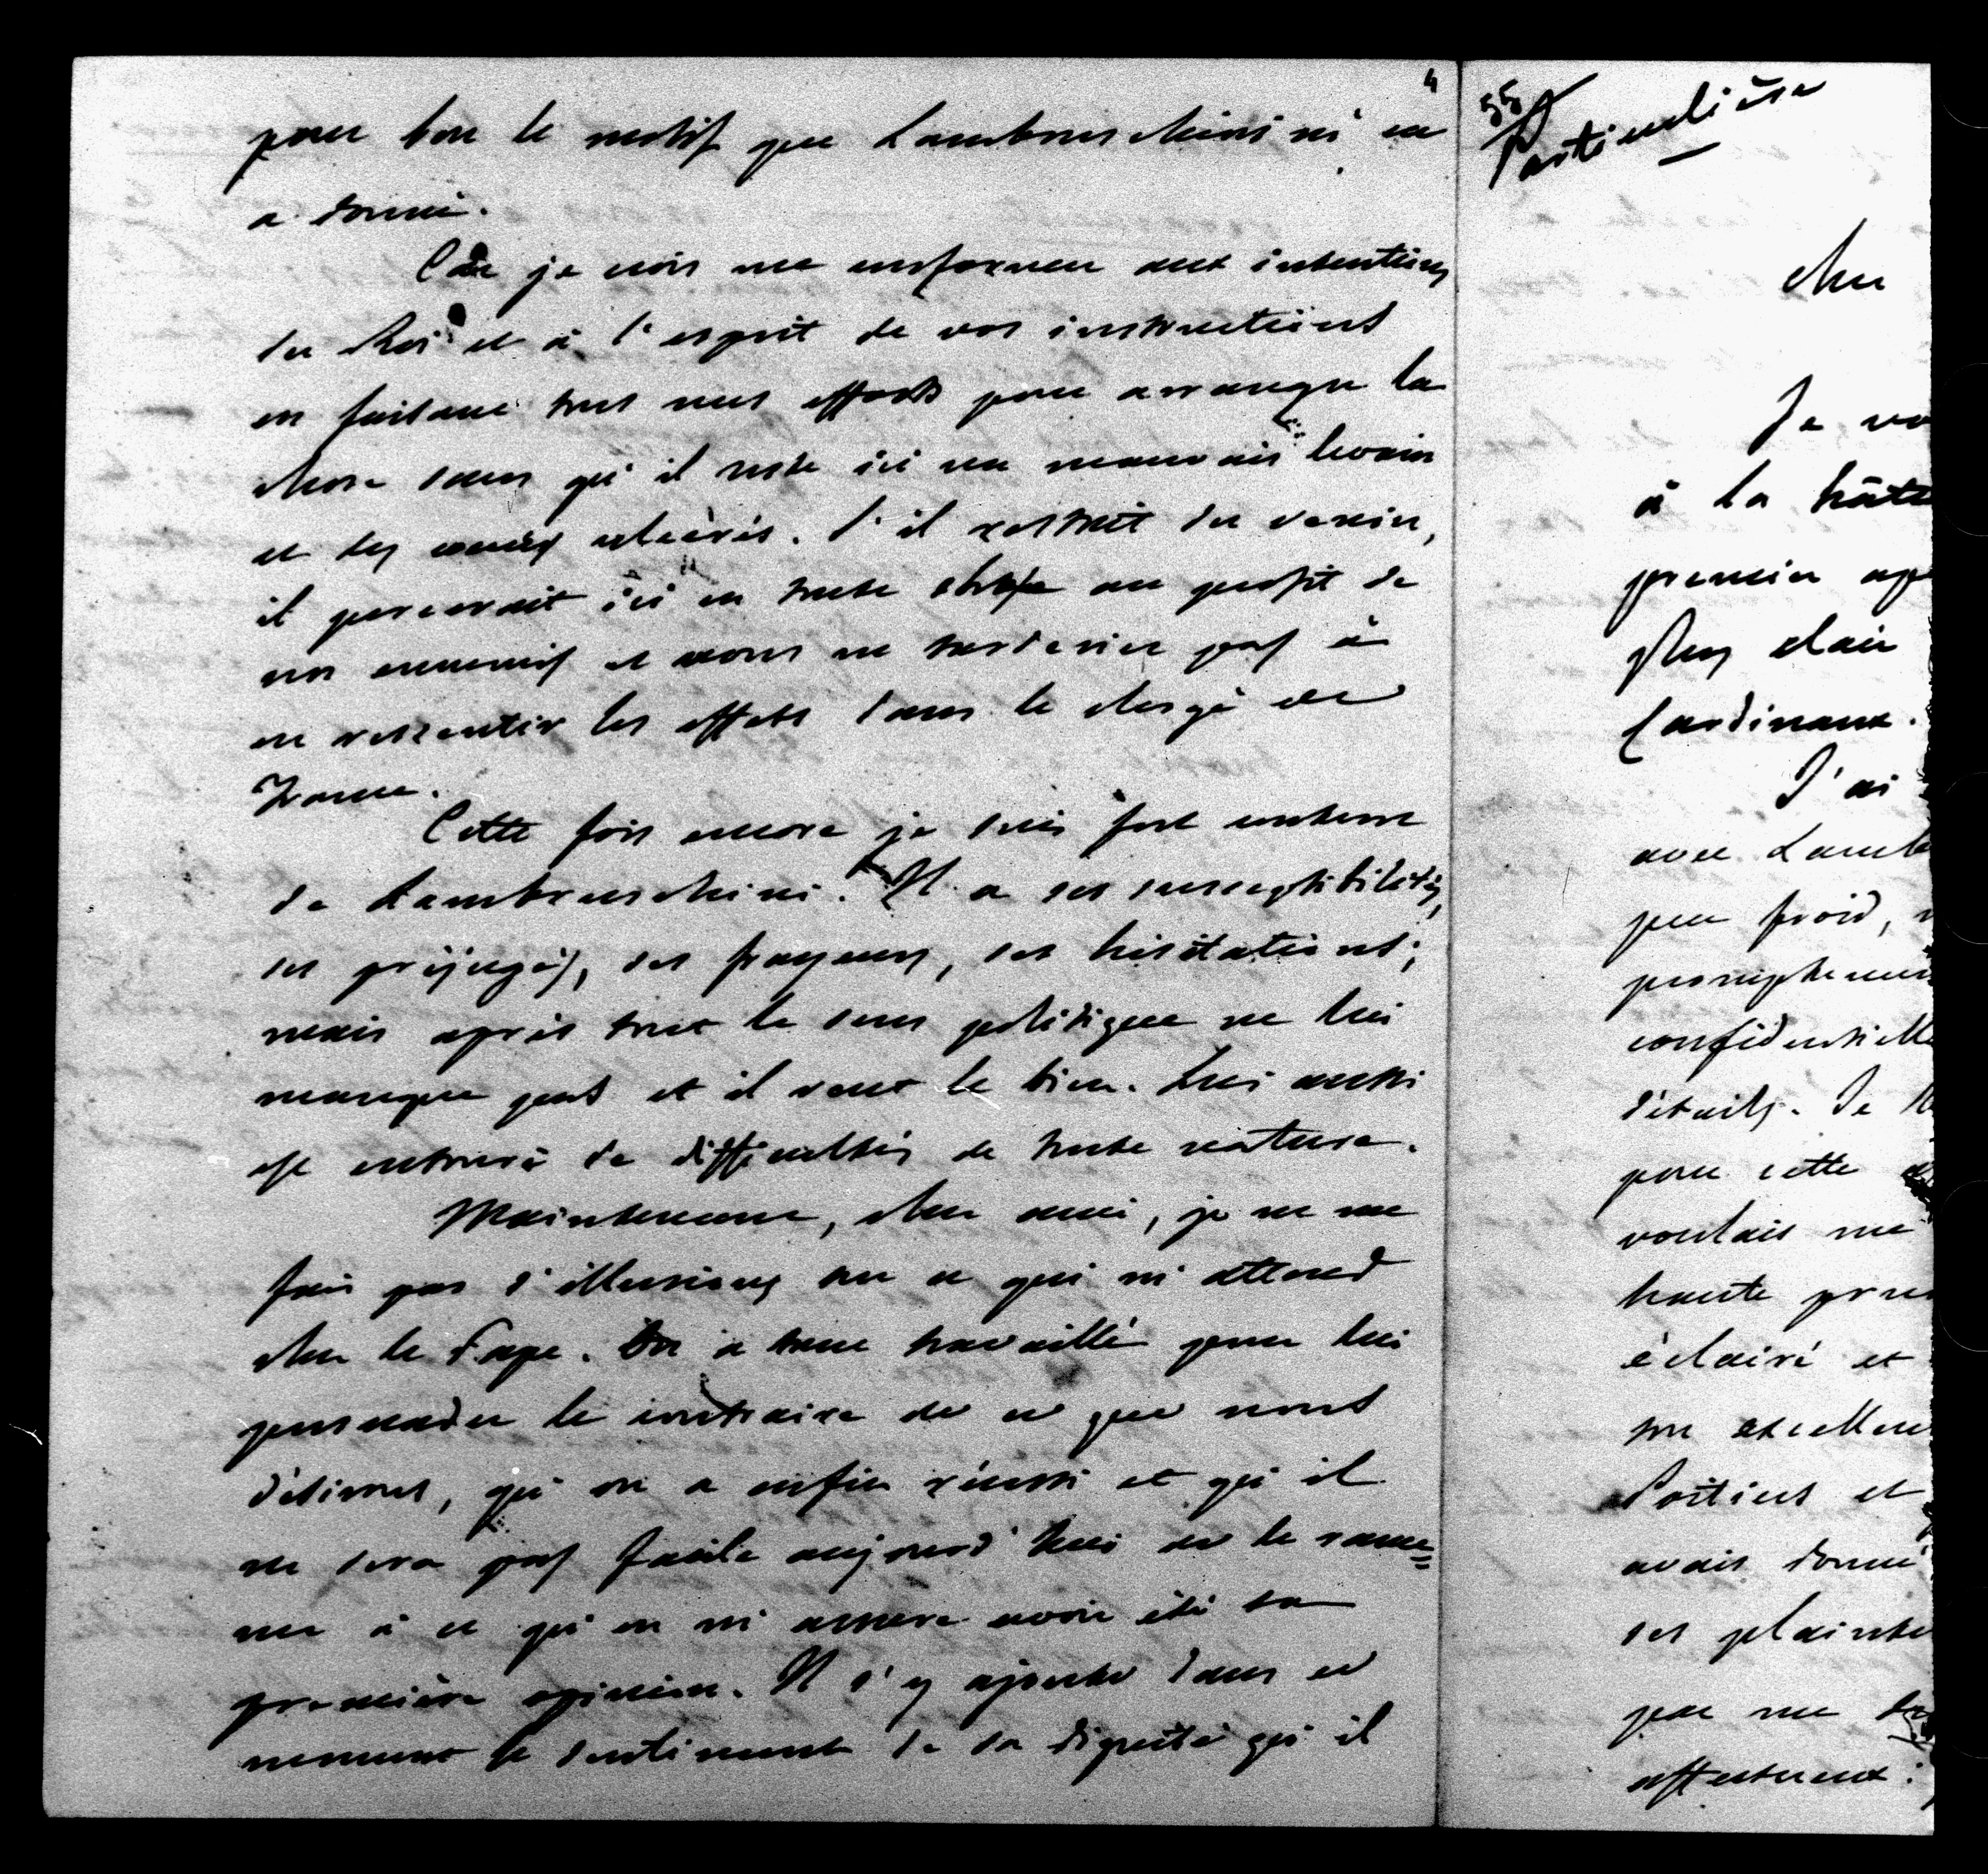 4
pour bon le motif que Lambruschini m'en
a donné.
Car je crois me conformer aux intentions
du Roi et à l'esprit de vos instructions
en faisant tous mes efforts pour arranger la
chose sans qu'il reste ici un mauvais levain
et des coeurs ulcérés. S'il restait du venin,
il percerait ici en toute chose au profit de
nos ennemis et nous ne tarderions pas à
en ressentir les effets dans le clergé de
France.
Cette fois encore je suis fort content
de Lambruschini. Il a ses susceptibilités,
ses préjugés, ses frayeurs, ses hésitations;
mais après tout le sens politique ne lui
manque pas et il veut le bien. Lui aussi
est entouré de difficultés de toute nature.
Maintenant, cher ami, je ne me
fais pas d'illusions sur ce qui m'attend
chez le Pape. On a tant travaillé pour lui
persuader le contraire de ce que nous
désirons, qu'on a enfin réussi et qu'il
ne sera pas facile aujourd'hui de le rame=
ner à ce qu'on m'assure avoir été sa
première opinion. Il s'y ajoute dans ce
moment le sentiment de sa dignité qu'il
55
Particulière
cher
Je vo
à la hâte
premier ap
plus clair
Cardinaux.
J'ai
avec Lamb
peu froid,
promptemen
confidentielle
détails. Je
pour cette
voulais me
haute pru
éclairé et
son excellen
Portiers et
avais donné
ses plainte
que me
affectueux: